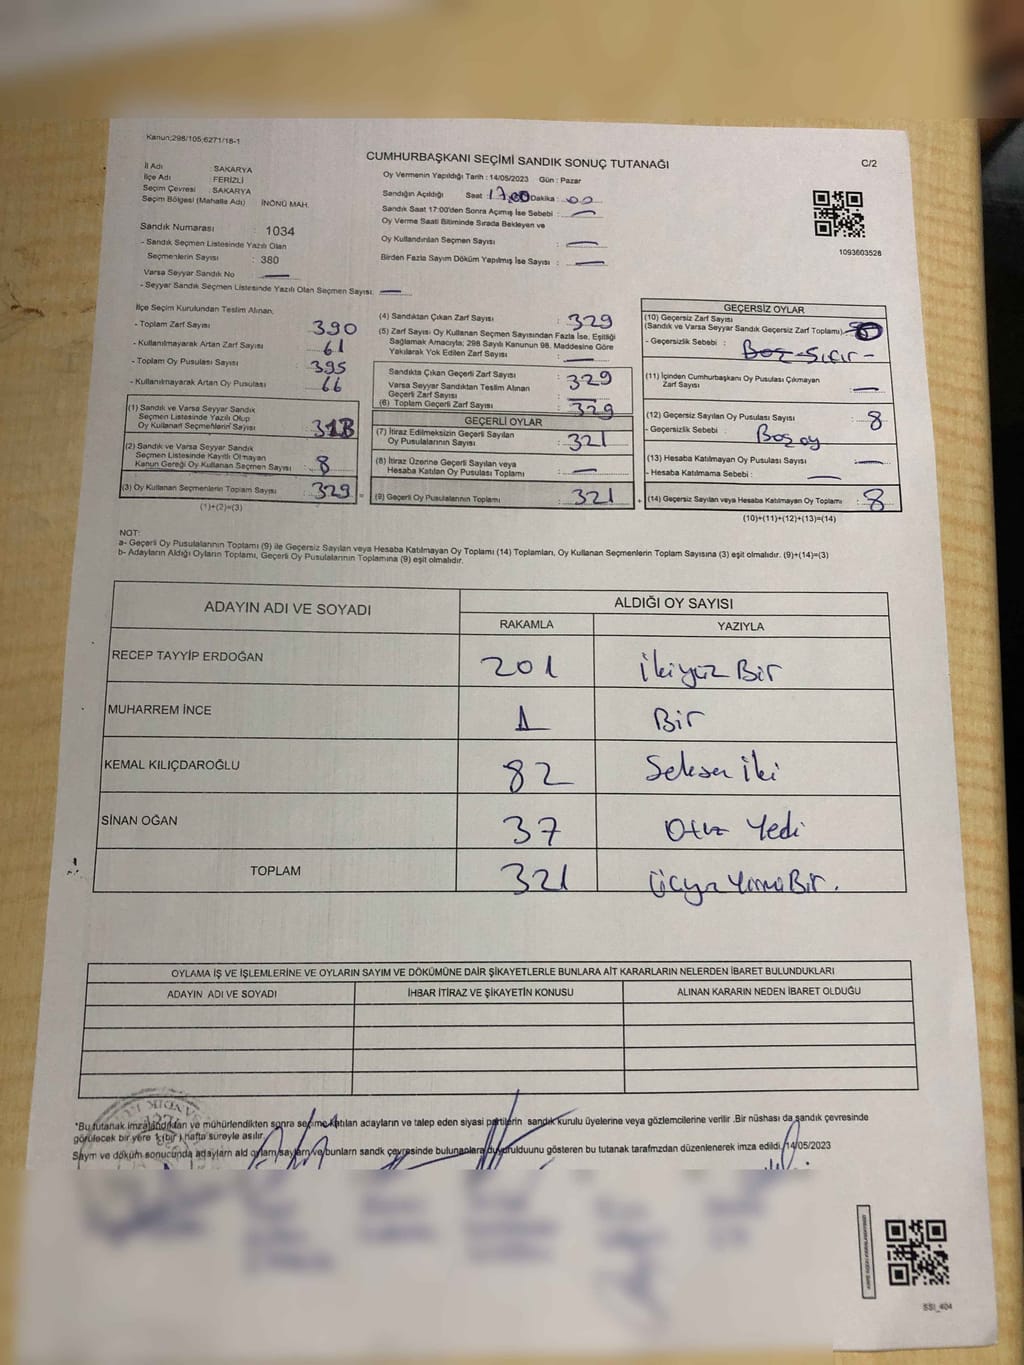 Kanun;298/105;6271/18-1
CUMHURBAŞKANI SEÇİMİ SANDIK SONUÇ TUTANAĞI
C/2
İl Adı : SAKARYA
İlçe Adı : FERİZLİ
Seçim Çevresi : SAKARYA
Seçim Bölgesi (Mahalle Adı) İNÖNÜ MAH.
Sandık Numarası : 1034
- Sandık Seçmen Listesinde Yazılı Olan
Seçmenlerin Sayısı : 380
Varsa Seyyar Sandık No —
- Seyyar Sandık Seçmen Listesinde Yazılı Olan Seçmen Sayısı: —
Oy Vermenin Yapıldığı Tarih : 14/05/2023 Gün : Pazar
Sandığın Açıldığı Saat : 17.00 Dakika : 00
Sandık Saat 17:00'den Sonra Açımış İse Sebebi : —
Oy Verme Saati Bitiminde Sırada Bekleyen ve
Oy Kullandırılan Seçmen Sayısı : —
Birden Fazla Sayım Döküm Yapılmış İse Sayısı : —
1093603528
İlçe Seçim Kurulundan Teslim Alınan;
- Toplam Zarf Sayısı : 390
- Kullanılmayarak Artan Zarf Sayısı : 61
- Toplam Oy Pusulası Sayısı : 395
- Kullanılmayarak Artan Oy Pusulası : 66
(1) Sandık ve Varsa Seyyar Sandık
Seçmen Listesinde Yazılı Olup
Oy Kullanan Seçmenlerin Sayısı :
(2) Sandık ve Varsa Seyyar Sandık
Seçmen Listesinde Kayıtlı Olmayan
Kanun Gereği Oy Kullanan Seçmen Sayısı : 8
(3) Oy Kullanan Seçmenlerin Toplam Sayısı : 329
(1)+(2)=(3)
(4) Sandıktan Çıkan Zarf Sayısı : 329
(5) Zarf Sayısı Oy Kullanan Seçmen Sayısından Fazla İse, Eşitliği
Sağlamak Amacıyla; 298 Sayılı Kanunun 98. Maddesine Göre
Yakılarak Yok Edilen Zarf Sayısı : —
Sandıkta Çıkan Geçerli Zarf Sayısı : 329
Varsa Seyyar Sandıktan Teslim Alınan
Geçerli Zarf Sayısı : —
(6) Toplam Geçerli Zarf Sayısı : 329
GEÇERLİ OYLAR
(7) İtiraz Edilmeksizin Geçerli Sayılan
Oy Pusulalarının Sayısı : 321
(8) İtiraz Üzerine Geçerli Sayılan veya
Hesaba Katılan Oy Pusulası Toplamı : —
(9) Geçerli Oy Pusulalarının Toplamı : 321
GEÇERSİZ OYLAR
(10) Geçersiz Zarf Sayısı
(Sandık ve Varsa Seyyar Sandık Geçersiz Zarf Toplamı)
- Geçersizlik Sebebi :
(11) İçinden Cumhurbaşkanı Oy Pusulası Çıkmayan
Zarf Sayısı : —
(12) Geçersiz Sayılan Oy Pusulası Sayısı : 8
- Geçersizlik Sebebi : Boş oy
(13) Hesaba Katılmayan Oy Pusulası Sayısı : —
- Hesaba Katılmama Sebebi : —
+ (14) Geçersiz Sayılan veya Hesaba Katılmayan Oy Toplamı : 8
(10)+(11)+(12)+(13)=(14)
NOT:
a- Geçerli Oy Pusulalarının Toplamı (9) ile Geçersiz Sayılan veya Hesaba Katılmayan Oy Toplamı (14) Toplamları, Oy Kullanan Seçmenlerin Toplam Sayısına (3) eşit olmalıdır. (9)+(14)=(3)
b- Adayların Aldığı Oyların Toplamı, Geçerli Oy Pusulalarının Toplamına (9) eşit olmalıdır.
ADAYIN ADI VE SOYADI
ALDIĞI OY SAYISI
RAKAMLA YAZIYLA
RECEP TAYYİP ERDOĞAN 201 İkiyüz Bir
MUHARREM İNCE 1 Bir
KEMAL KILIÇDAROĞLU 82 Seksen İki
SİNAN OĞAN 37 Otuz Yedi
TOPLAM 321 Üçyüz Yirmi Bir.
OYLAMA İŞ VE İŞLEMLERİNE VE OYLARIN SAYIM VE DÖKÜMÜNE DAİR ŞİKAYETLERLE BUNLARA AİT KARARLARIN NELERDEN İBARET BULUNDUKLARI
ADAYIN ADI VE SOYADI İHBAR İTİRAZ VE ŞİKAYETİN KONUSU ALINAN KARARIN NEDEN İBARET OLDUĞU
*Bu tutanak imzalandıktan ve mühürlendikten sonra seçime katılan adayların ve talep eden siyasi partilerin sandık kurulu üyelerine veya gözlemcilerine verilir .Bir nüshası da sandık çevresinde
görülecek bir yere 1 (bir ) hafta süreyle asılır.
Sayım ve döküm sonucunda adayların ald oyların/sayıların ve bunların sandk çevresinde bulunanlara duyurulduunu gösteren bu tutanak tarafmzdan düzenlenerek imza edildi. 14/05/2023
SSI_404